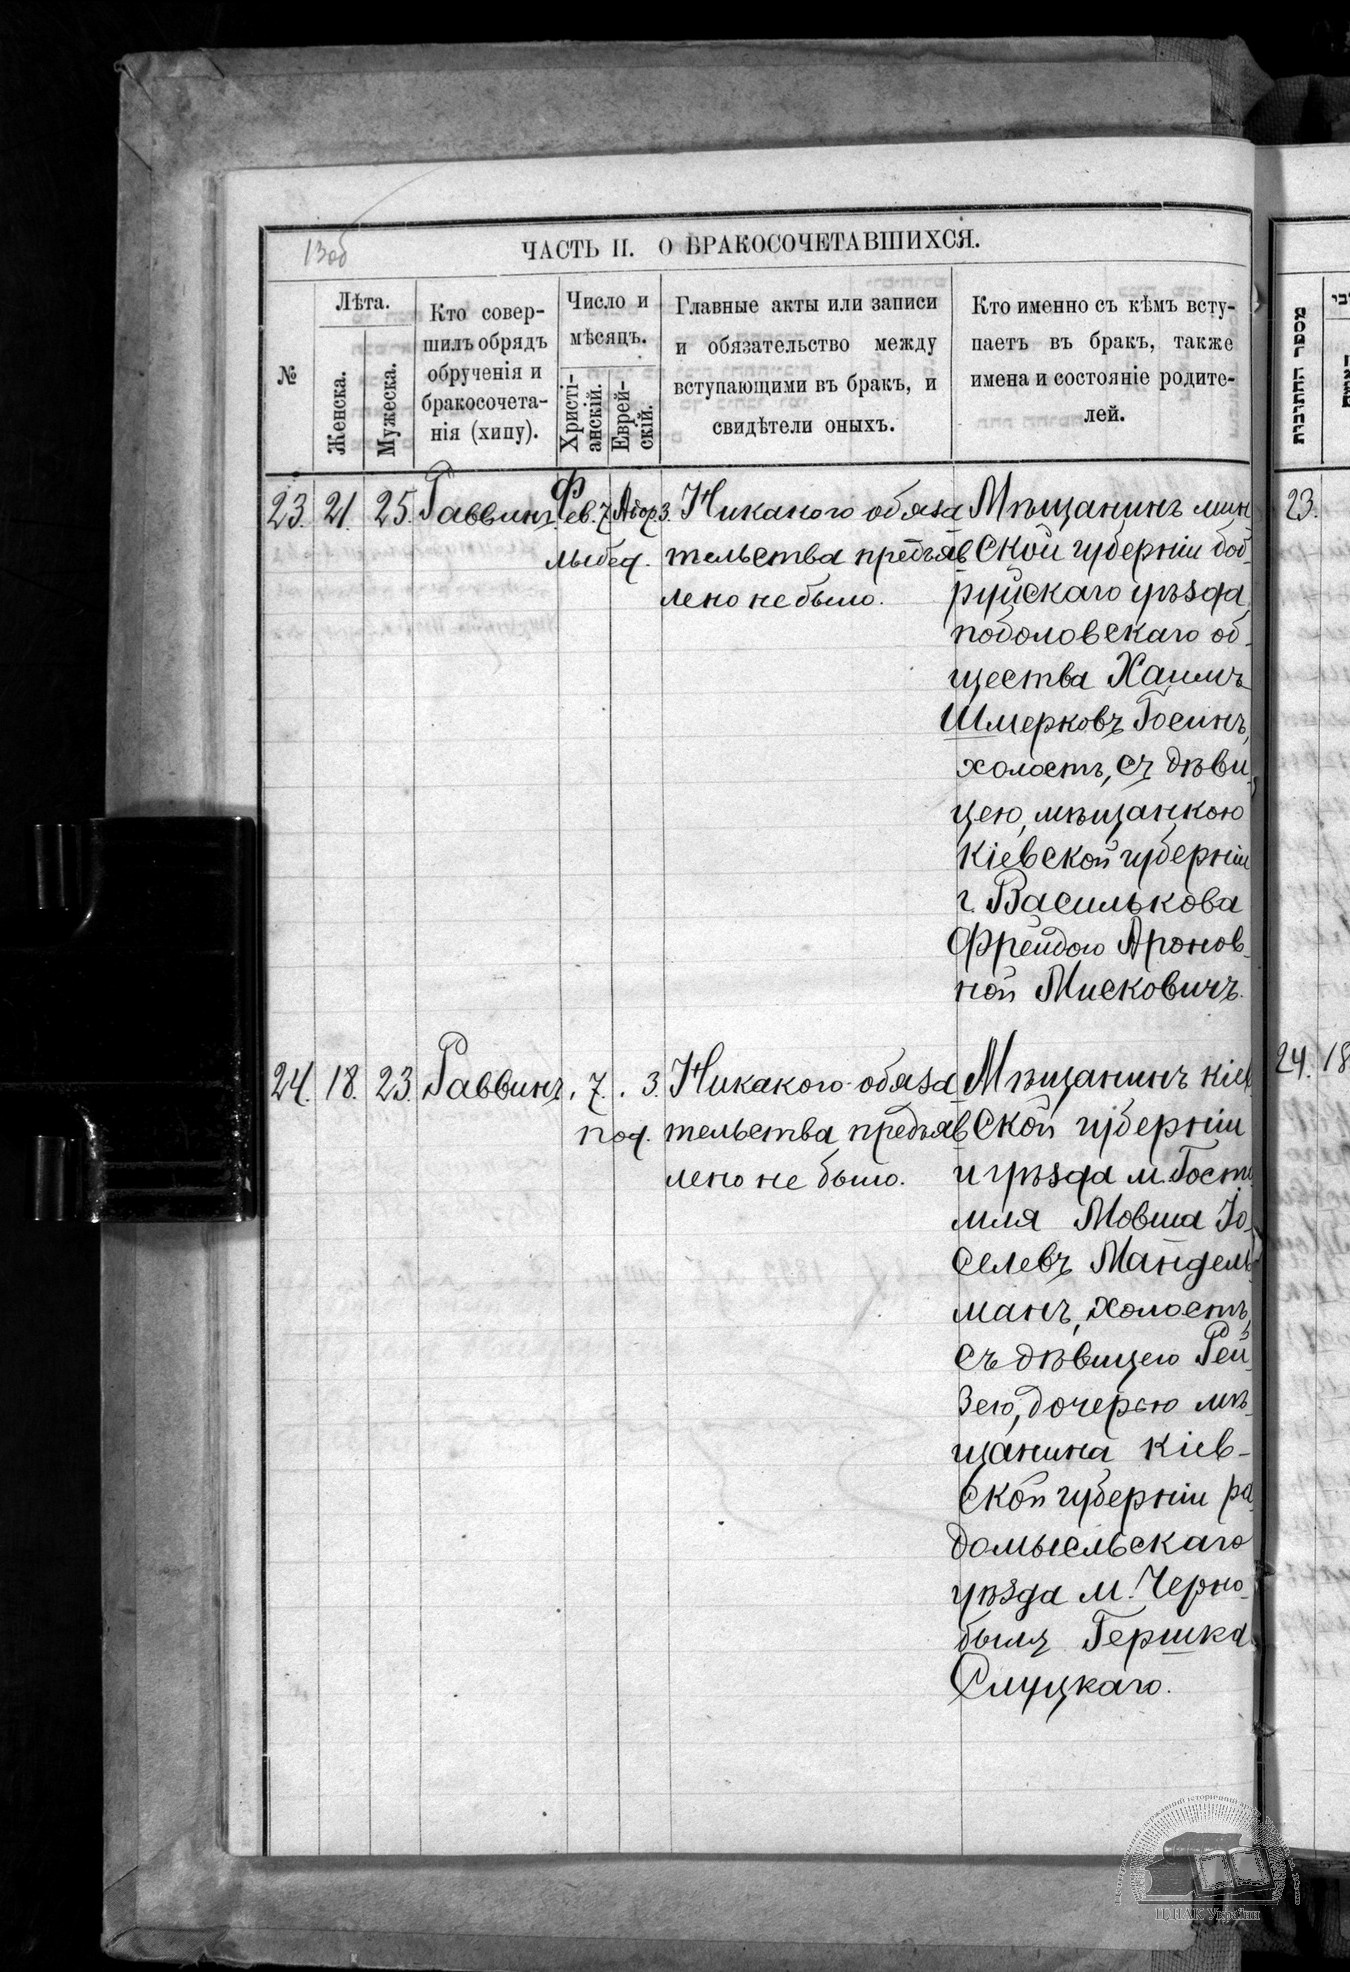 13об
ЧАСТЬ II. О БРАКОСОЧЕТАВШИХСЯ.
№
Лѣта.
Женска.
Мужеска.
Кто совер-
шилъ обрядъ
обрученія и
бракосочета-
нія (хипу).
Число и
мѣсяцъ.
Христі-
анскій.
Еврей-
скій.
Главные акты или записи
и обязательство между
вступающими въ бракъ, и
свидѣтели оныхъ.
Кто именно съ кѣмъ всту-
паетъ въ бракъ, также
имена и состояніе родите-
лей.
מספר החתונות
23. 21. 25. Раввинъ. Фев. 7. Адор 3. Никакого обяза Мѣщанинъ мин
лыбед. тельства предъяв ской губерніи боб-
лено не было. руйскаго уѣзда,
поболовскаго об-
щества Хаимъ
Шмерковъ Госинъ,
холостъ, съ дѣви-
цею, мѣщанкою
Кіевской губерніи
г. Василькова
Фрейдою Аронов-
ной Мисковичъ.
23.
24. 18. 23. Раввинъ. 7. 3. Никакого обяза Мѣщанинъ Кіев
под. тельства предъяв ской губерніи
лено не было. и уѣзда м. Госто
мля Мовша Іо-
селевъ Мандель-
манъ, холостъ,
съ дѣвицею Рей-
зею, дочерью мѣ-
щанина Кіев-
ской губерніи ра
домысльскаго
уѣзда м. Черно-
быля Гершка
Слуцкаго.
24. 18
ЦДІАК України